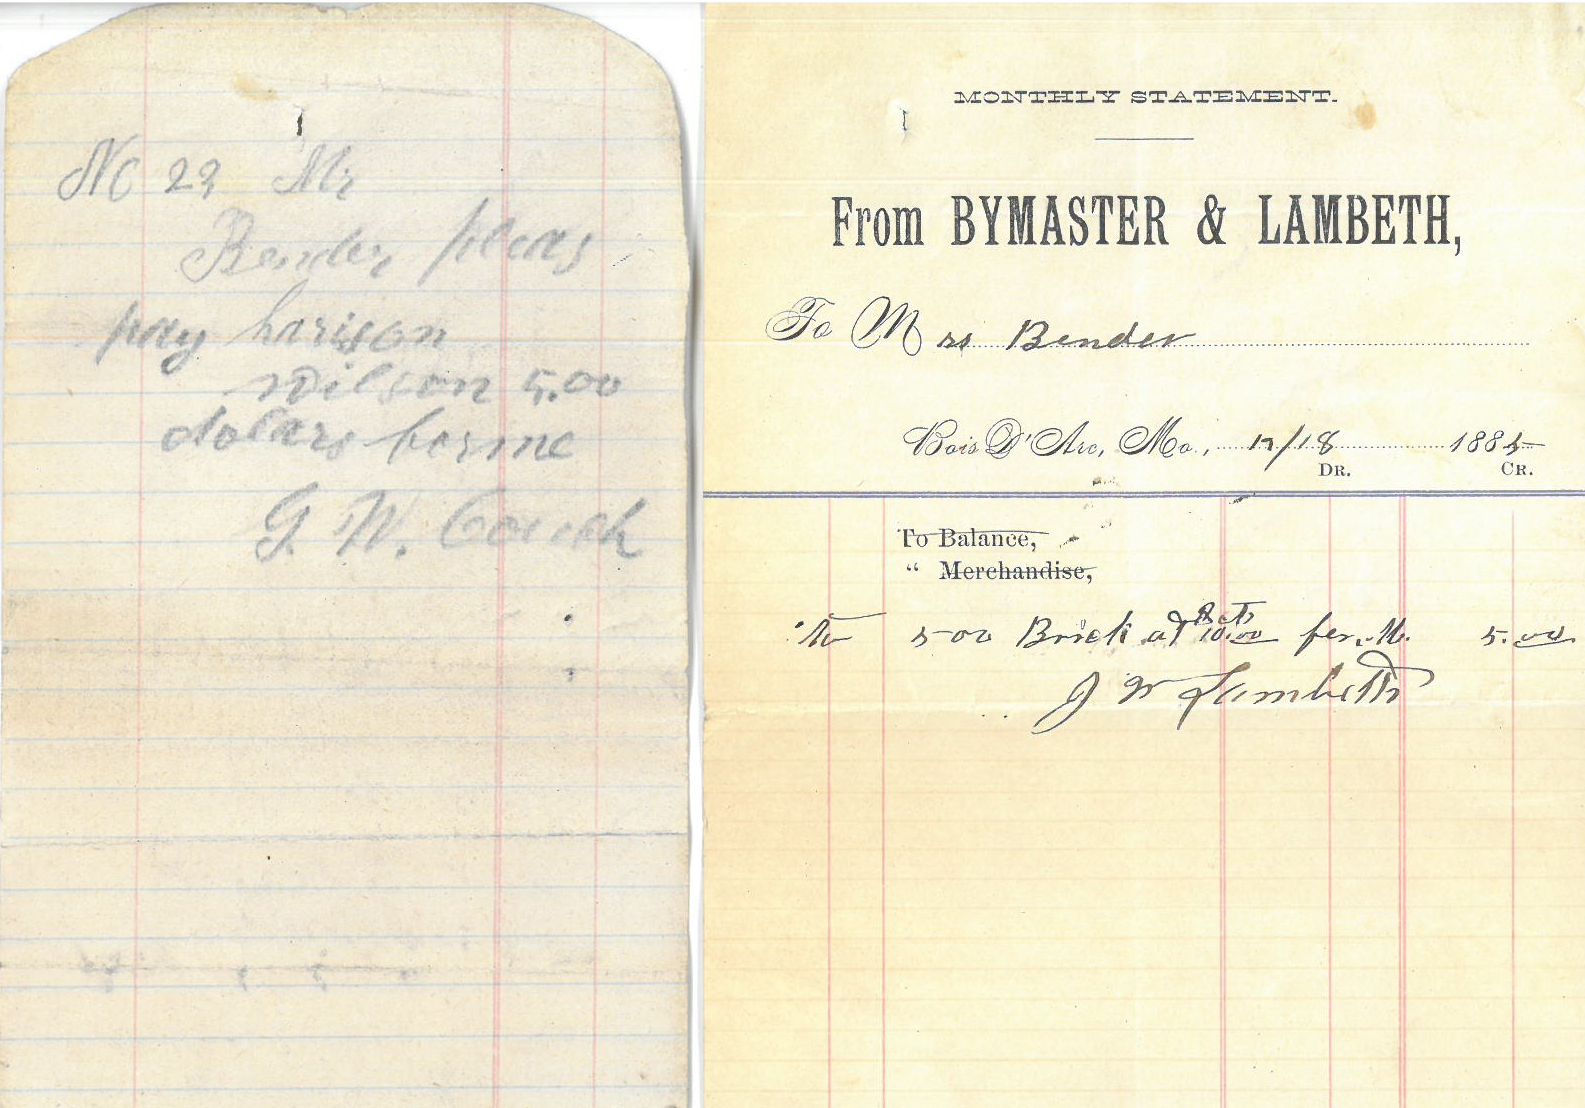 No 22 Mr
Bender pleas
pay harison
Wilson 5.00
dolars for me
G. W. Couch
MONTHLY STATEMENT.
From BYMASTER & LAMBETH,
To Mrs Bender
Bois D'Arc, Mo., 12/18 1885
DR. CR.
To Balance,
" Merchandise,
To 500 Brick at 10.00 per. M. 5.00
J W Lambeth